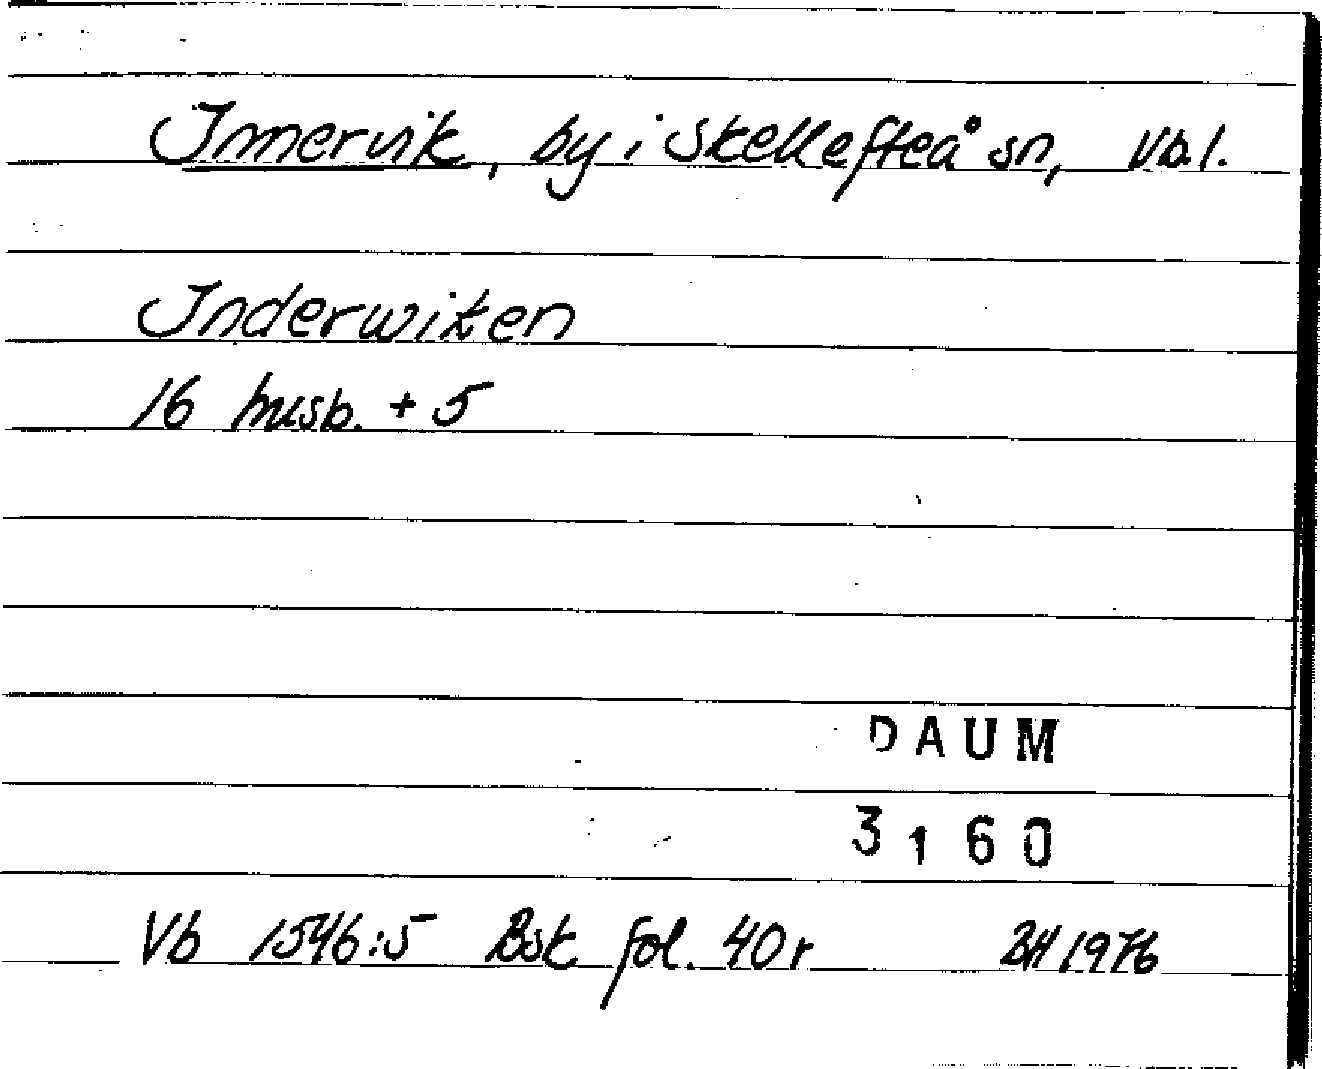 Innervik, by i Skellefteå sn, Vb.l.
Inderwiken
16 husb. + 5
DAUM
3160
Vb 1546:5 Bsk fol. 40r BH 1976